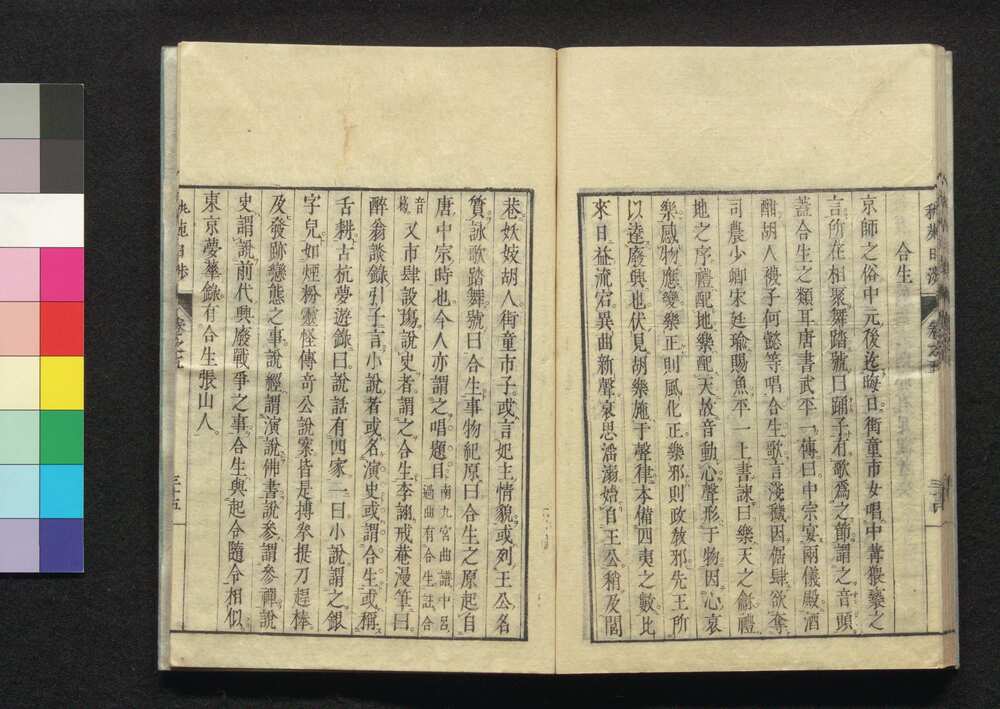 合生
京師之俗中元後迄晦日街童市女唱中冓猥褻之
言所在相聚舞踏號曰踊子有歌爲之節謂之音頭
蓋合生之類耳唐書武平一傳曰中宗宴兩儀殿酒
酣胡人襪子何懿等唱合生歌言淺穢因倨肆欲奪
司農少卿宋廷瑜賜魚平一上書諫曰樂天之龢禮
地之序禮配地樂配天故音動心聲形于物因心哀
樂感物應變樂正則風化正樂邪則政敎邪先王所
以達廢興也伏見胡樂施于聲律本備四夷之數比
來日益流宕異曲新聲哀思淫溺始自王公稍及閭
巷妖妓胡人街童市子或言妃主情貌或列王公名
質詠歌踏舞號曰合生事物紀原曰合生之原起自
唐中宗時也今人亦謂之唱題目南九宮曲譜中呂
過曲有合生註合
音 又市肆設塲說史者謂之合生李詡戒菴漫筆曰
醉翁談錄引子言小說者或名演史或謂合生或稱
舌耕古杭夢遊錄曰說話有四家一曰小說謂之銀
字兒如煙粉靈怪傳奇公說案皆是搏拳提刀趕棒
及發跡變態之事說經謂演說佛書說參謂參禪說
史謂說前代興廢戰爭之事合生與起令隨令相似
東京夢華錄有合生張山人
卷之五
三十五